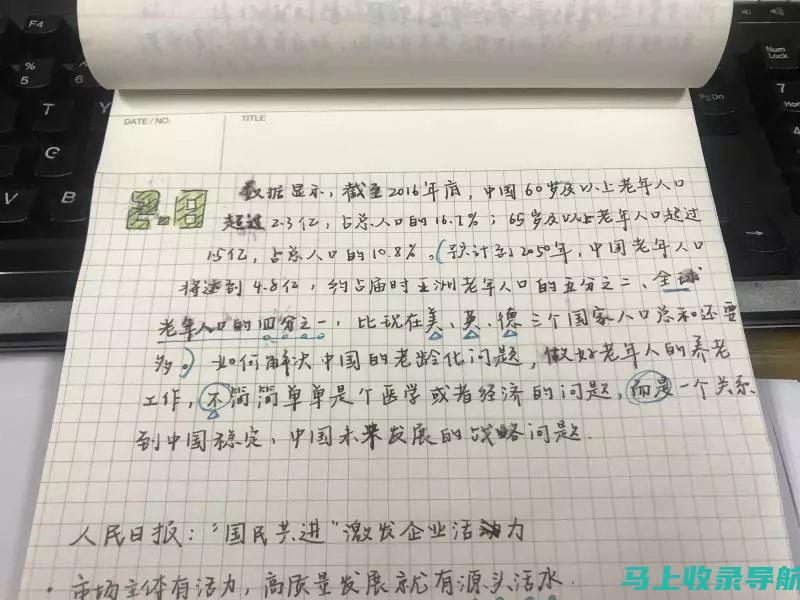 DATE / NO.
TITLE
2.8
数据显示，截至2016年底，中国60岁及以上老年人口
超过2.3亿，占总人口的16.7%；65岁及以上老年人口超过
1.5亿，占总人口的10.8%。（预计到2050年，中国老年人口
将达到4.8亿，约占届时亚洲老年人口的五分之二、全球
老年人口的四分之一，比现在美、英、德三个国家人口总和还要
多。）如何解决中国的老龄化问题，做好老年人的养老
工作，不简简单单是个医学或者经济的问题，而是一个关系
到中国稳定、中国未来发展的战略问题.
人民日报：“国民共进”激发企业活力
· 市场主体有活力，高质量发展就有源头活水.
马上收录导航
%
5
T
Y
V
PgDn
Num
Lock
7
Home
4
1